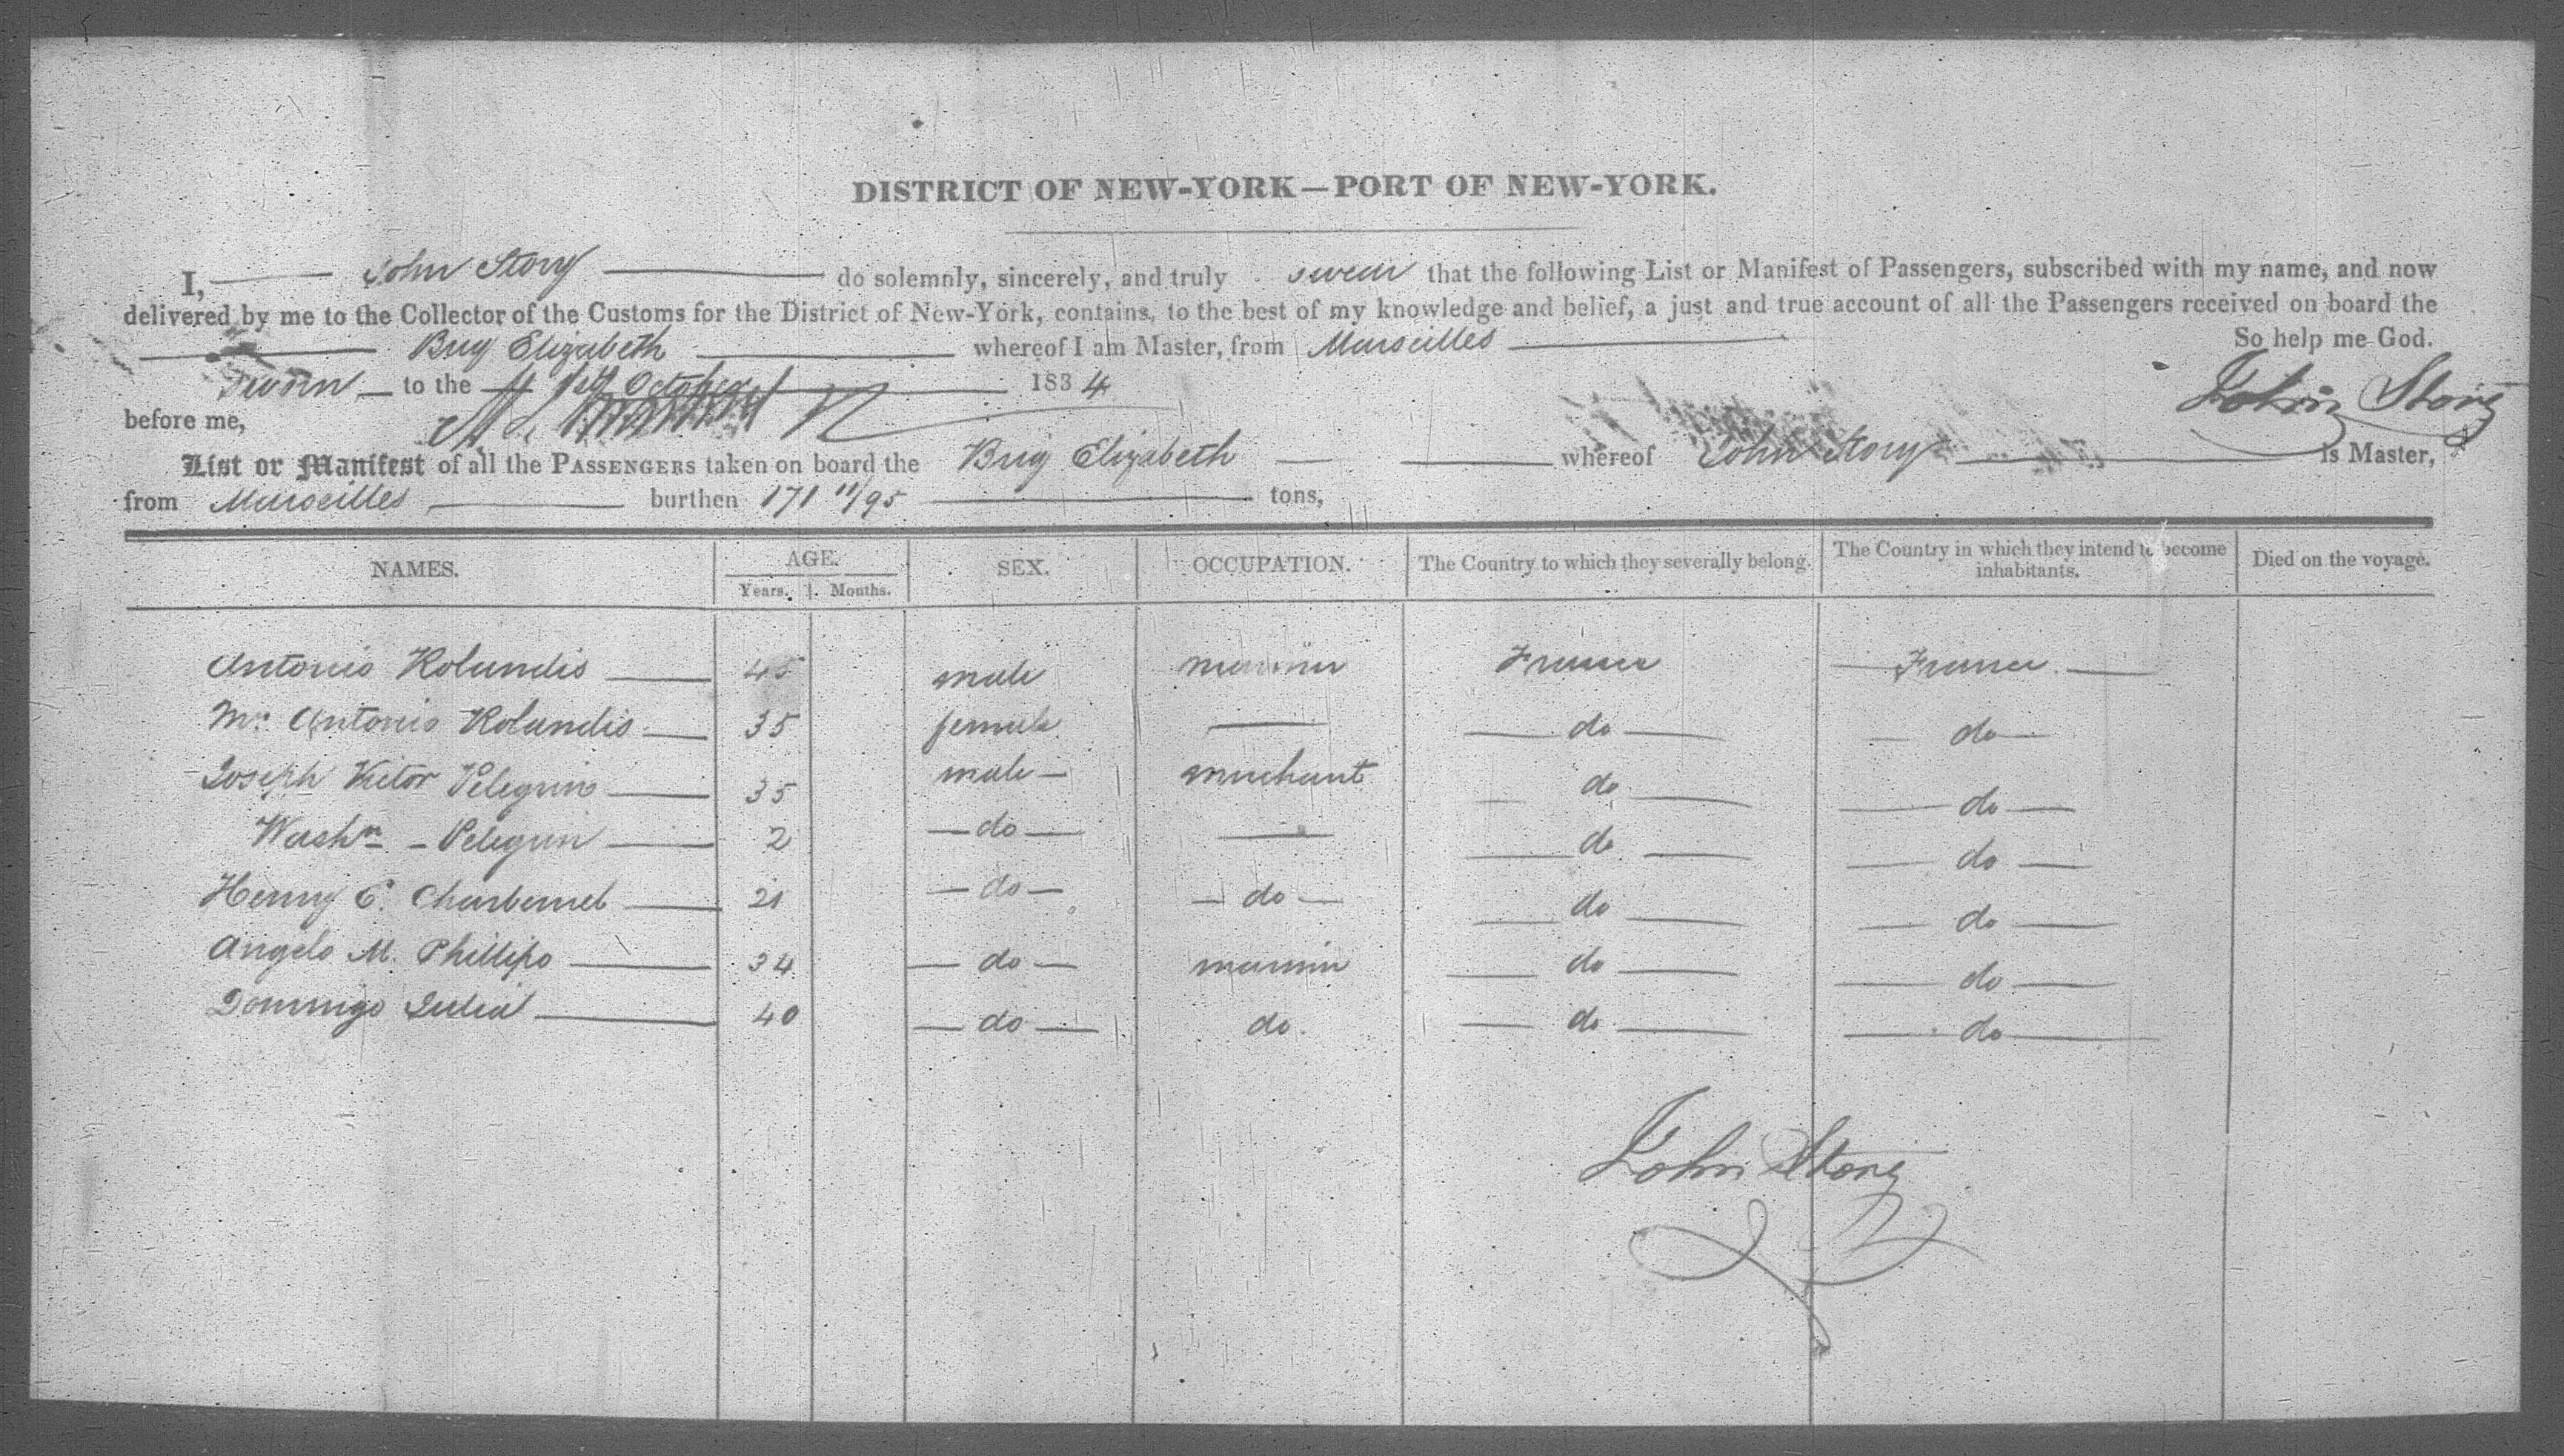 DISTRICT OF NEW-YORK—PORT OF NEW-YORK.
I, John Story do solemnly, sincerely, and truly swear that the following List or Manifest of Passengers, subscribed with my name, and now
delivered by me to the Collector of the Customs for the District of New-York, contains, to the best of my knowledge and belief, a just and true account of all the Passengers received on board the
Brig Elizabeth whereof I am Master, from Marseilles So help me God.
Sworn to the October 1834 John Story
before me,
List or Manifest of all the PASSENGERS taken on board the Brig Elizabeth whereof John Story is Master,
from Marseilles burthen 171 11/95 tons,
NAMES. AGE. Years. Months. SEX. OCCUPATION. The Country to which they severally belong. The Country in which they intend to become inhabitants. Died on the voyage.
Antonio Rolandis 45 male mariner France France
Mrs Antonio Rolandis 35 female do do
Joseph Victor Pelegrin 35 male merchant do do
Washn Pelegrin 2 do do do
Henry C. Charbernel 21 do do do do
Angelo M. Phillipo 34 do mariner do do
Domingo Julia 40 do do. do do
John Story